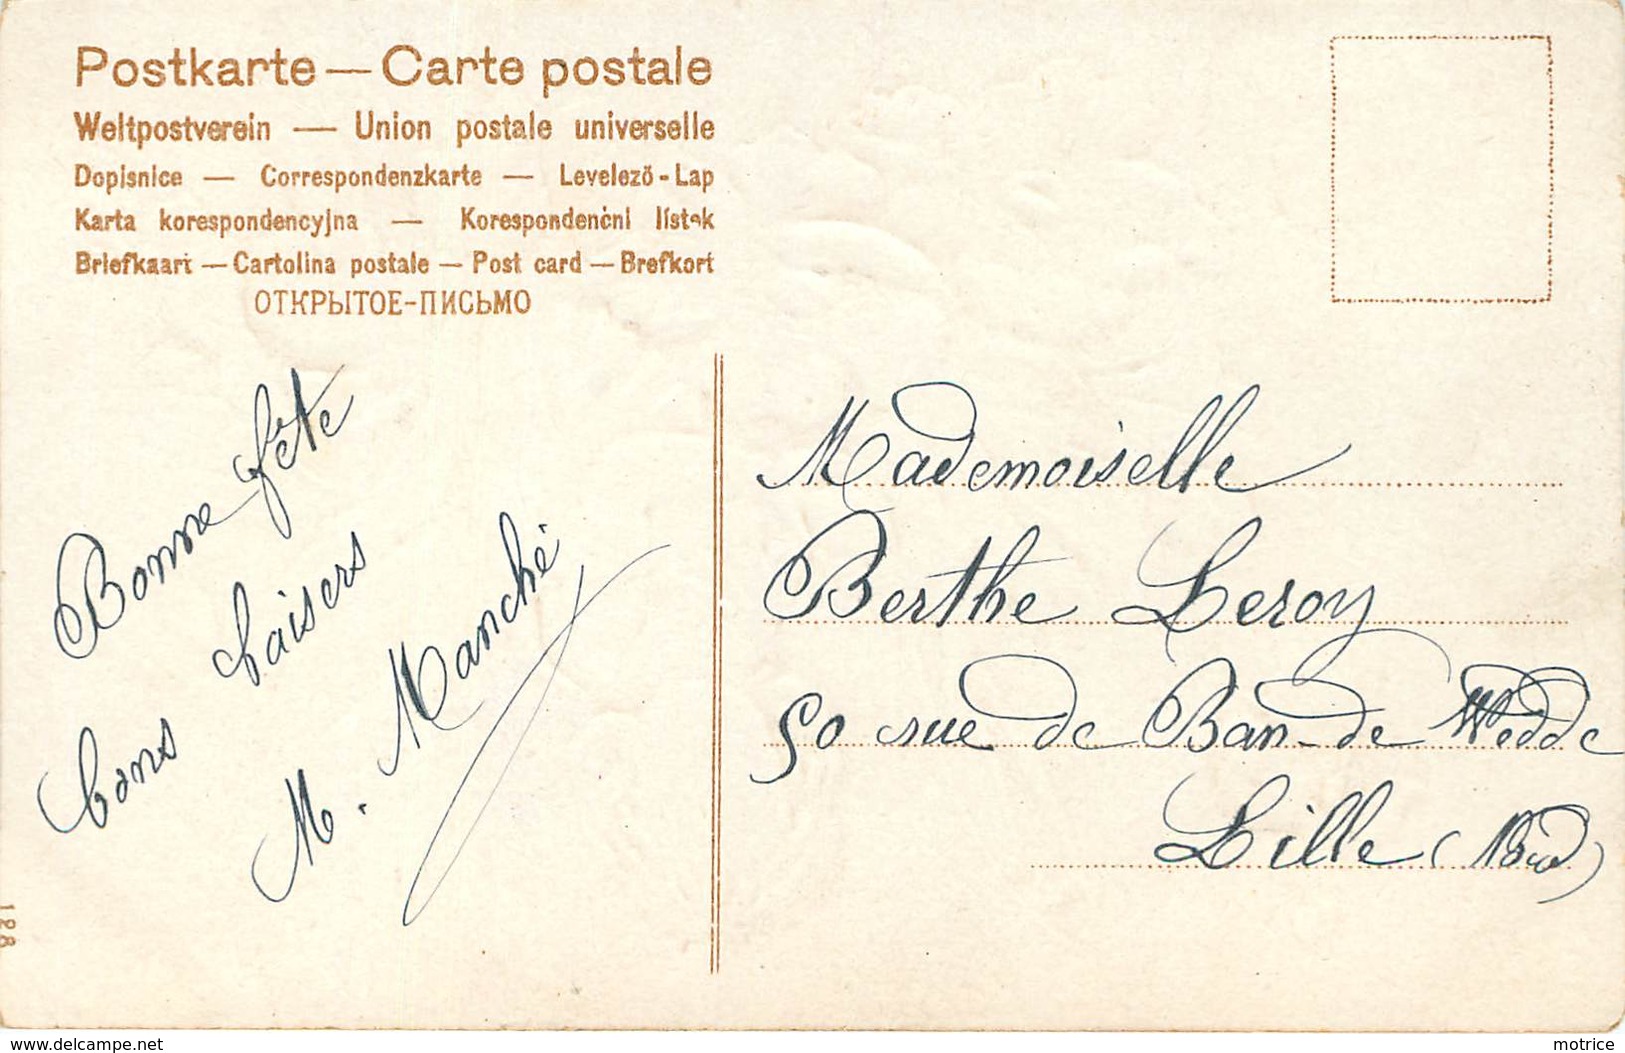 Postkarte — Carte postale
Weltpostverein — Union postale universelle
Dopisnice — Correspondenzkarte — Levelező-Lap
Karta korespondencyjna — Korespondenční lístek
Briefkaart — Cartolina postale — Post card — Brefkort
ОТКРЫТОЕ-ПИСЬМО
Bonne fête
bons baisers
M. Manché
Mademoiselle
Berthe Leroy
50 rue de Ban-de Wedde
Lille (Nord)
128
www.delcampe.net
motrice